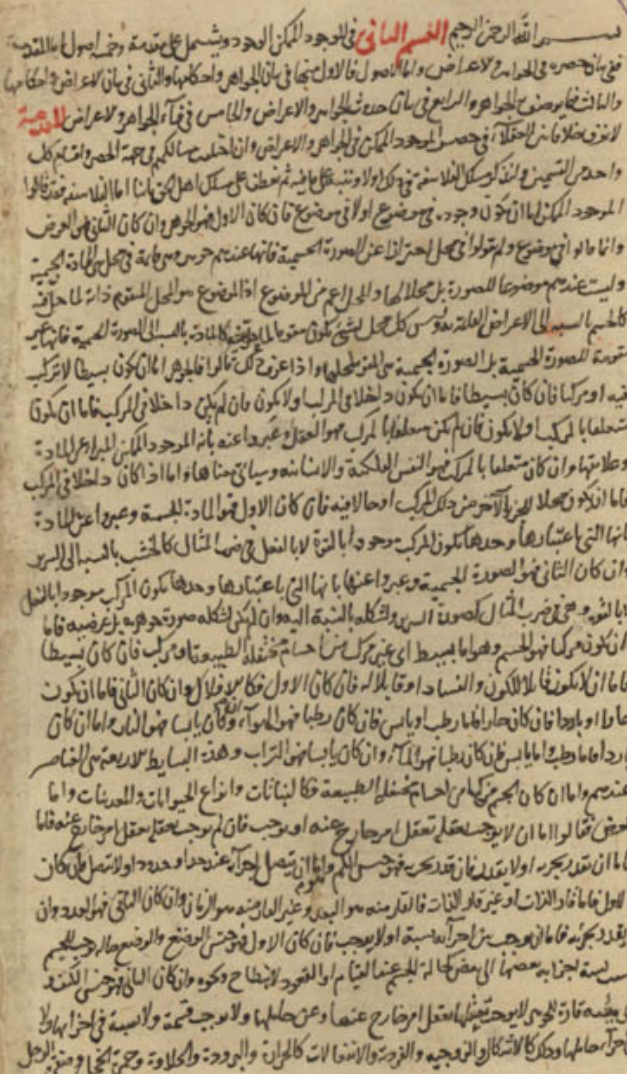 بسم الله الرحمن الرحيم القسم الثانى فى الموجود الممكن الوجود ويشتمل على مقدمة وخمسة اصول اما المقدمة
ففى بيان حصره فى الجواهر والاعراض واما الاصول فالاول منها فى بيان الجواهر واحكامها والثانى فى بيان الاعراض واحكامها
والثالث فيما يوصف به الجواهر والرابع فى بيان حدث الجواهر والاعراض والخامس فى فناء الجواهر والاعراض المقدمة
لا نعرف خلافا بين العقلاء فى حصر الموجود الممكن فى الجواهر والاعراض وان اختلفت مسالكهم فى جهة الحصر واقسام كل
واحد من القسمين ولنذكر مسلك الفلاسفة فى ذلك اولا وننبه على ما فيه ثم نعطف على مسلك اهل الحق ثانيا اما الفلاسفة فقد قالوا
الموجود الممكن اما ان يكون وجوده فى موضوع او لا فى موضوع فان كان الاول فهو الجوهر وان كان الثانى فهو العرض
وانما قالوا فى موضوع ولم يقولوا فى محل احترازا عن الصورة الجسمية فانها عندهم جوهر وهى قائمة فى محل هى المادة الجسمية
وليست عندهم موضوعا للصورة بل محلا لها والمحل اعم من الموضوع اذ الموضوع هو المحل المتقوم ذاته لما حل فيه
كالجسم بالنسبة الى الاعراض القائمة به وليس كل محل لشىء يكون مقوما لما حل فيه كالمادة بالنسبة الى الصورة الجسمية فانها غير
متقومة للصورة الجسمية بل الصورة الجسمية هى المقومة لمحلها واذا عرف ذلك قالوا فالجوهر اما ان يكون بسيطا لا تركب
فيه او مركبا فان كان بسيطا فاما ان يكون داخلا فى المركب او لا يكون فان لم يكن داخلا فى المركب فاما ان يكون
متعلقا بالمركب او لا يكون فان لم يكن متعلقا بالمركب فهو العقل وعبروا عنه بانه الموجود الممكن المبرا عن المادة
وعلائقها وان كان متعلقا بالمركب فهو النفس الفلكية والانسانية وسياتى معناها واما اذا كان داخلا فى المركب
فاما ان يكون محلا للجزء الآخر من ذلك المركب او حالا فيه فان كان الاول فهو المادة الجسمية وعبروا عن المادة
بانها التى باعتبارها وحدها يكون المركب موجودا بالقوة لا بالفعل فى ضرب المثال كالخشب بالنسبة الى السرير
وان كان الثانى فهو الصورة الجسمية وعبروا عنها بانها التى باعتبارها وحدها يكون المركب موجودا بالفعل
لا بالقوة وهى فى ضرب المثال كصورة السرير وشكله بالنسبة اليه وان لم يكن شكله صورة جوهرية بل عرضية فاما
ان يكون مركبا فهو الجسم وهو اما بسيط اى غير مركب من اجسام مختلفة الطبيعة او مركب فان كان بسيطا
فاما ان لا يكون قابلا للكون والفساد او قابلا له فان كان الاول فكالافلاك وان كان الثانى فاما ان يكون
حارا او باردا فان كان حارا فاما رطب او يابس فان كان رطبا فهو الهواء وان كان يابسا فهو النار واما ان كان
باردا فاما رطب واما يابس فان كان رطبا فهو الماء وان كان يابسا فهو التراب وهذه البسائط الاربعة هى العناصر
عندهم واما ان كان الجسم مركبا من اجسام مختلفة الطبيعة فكالنباتات وانواع الحيوانات والمعدنيات واما
العرض فقالوا اما ان لا يوجب تعقله تعقل امر خارج عنه او يوجب فان لم يوجب تعقله تعقل امر خارج عنه فاما
اما ان تقدر تجزيه او لا تقدر فان تقدر تجزيه فهو جنس الكم واما ان يتصل اجزاؤه عند حد او حدود او لا تتصل فان كان
الاول فاما قار الذات او غير قار الذات فالقار منه هو البعد وغير القار منه هو الزمان وان كان الثانى فهو العدد وان
يقدر تجزيه فاما ان يوجب بين اجزائه نسبة او لا يوجب فان كان الاول فهو جنس الوضع والوضع حالة توجب للجسم
نسبة اجزائه بعضها الى بعض كحالة الجسم عند القيام او القعود والانبطاح ونحوه وان كان الثانى فهو جنس الكيف
هيئة قارة للجوهر لا يوجب تعقلها تعقل امر خارج عنها وعن حاملها ولا يوجب قسمة ولا نسبة فى اجزائها ولا
اجزاء حاملها وذلك كالاشكال والزوجية والفردية والانفعالات كالحرارة والبرودة والحلاوة وحمرة الخجل وصفرة الوجل